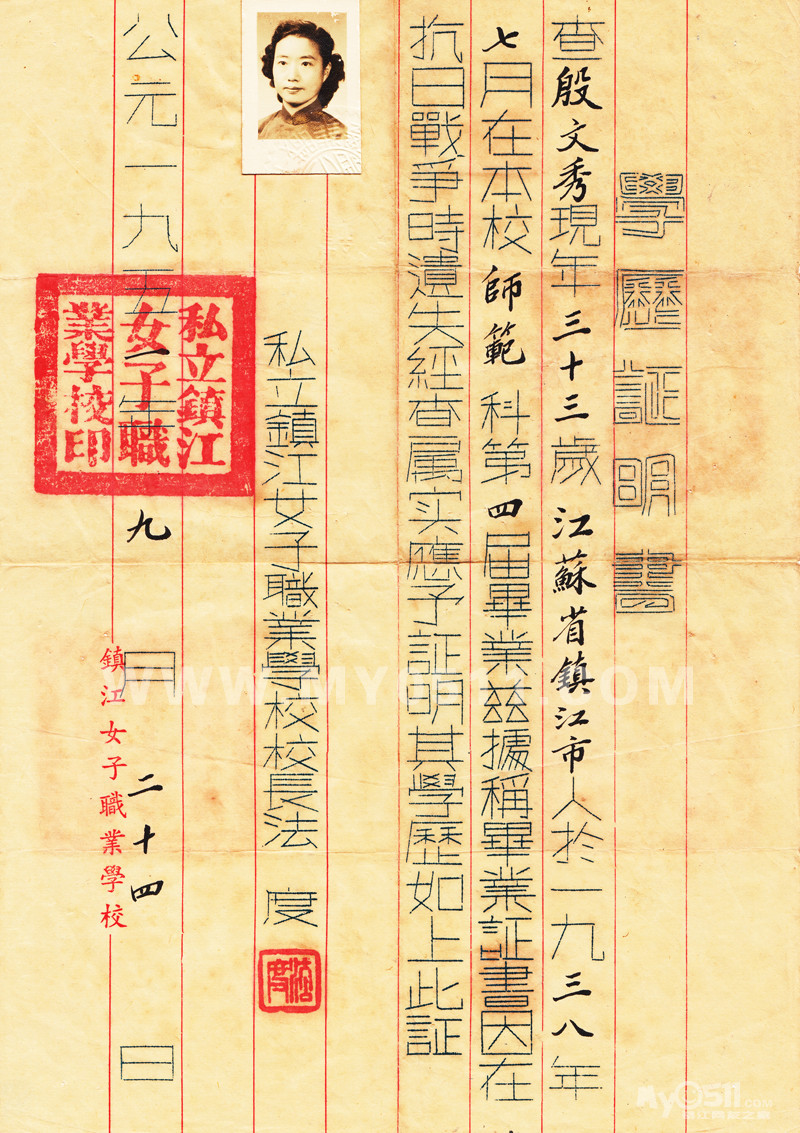 學歷証明書
查殷文秀現年三十三歲江蘇省鎮江市人於一九三八年
七月在本校師範科第四届畢業兹據稱畢業証書因在
抗日戰爭時遺失經查属实應予証明其學歷如上此証
私立鎮江女子職業學校校長法 度
法度
公元一九五 年九月二十四日
私立鎮江
女子職
業學校印
鎮江女子職業學校
WWW.MY0511.COM
My0511.COM